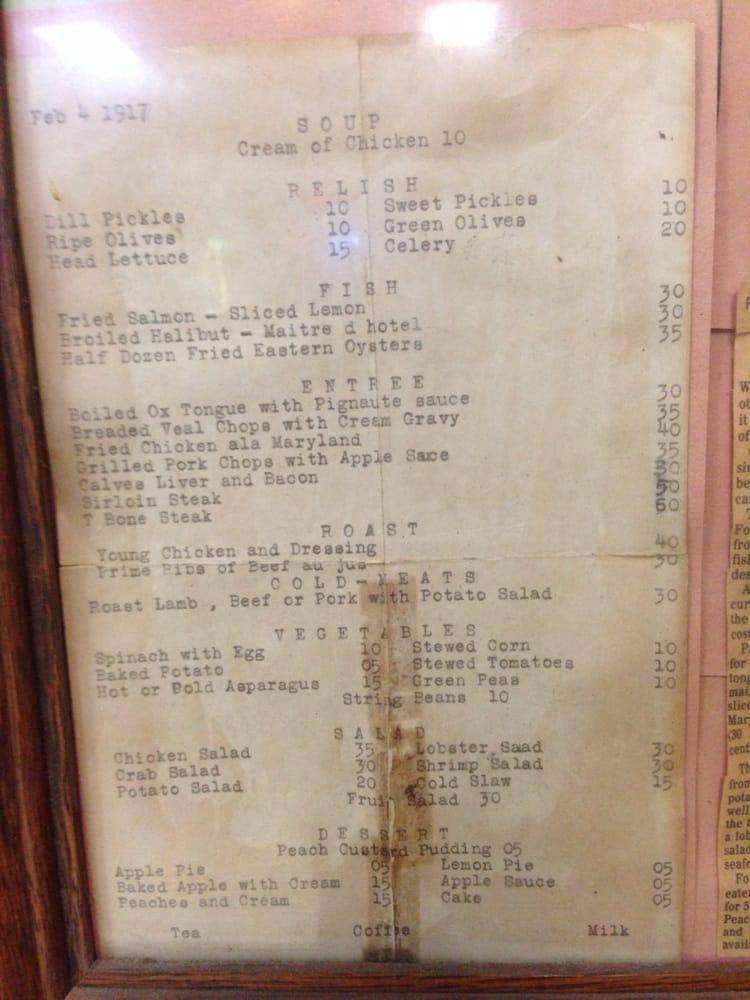 Feb 4 1917
SOUP
Cream of Chicken 10
RELISH
Dill Pickles 10 Sweet Pickles 10
Ripe Olives 10 Green Olives 10
Head Lettuce 15 Celery 20
FISH
Fried Salmon - Sliced Lemon 30
Broiled Halibut - Maitre d hotel 30
Half Dozen Fried Eastern Oysters 35
ENTREE
Boiled Ox Tongue with Pignaute sauce 30
Breaded Veal Chops with Cream Gravy 35
Fried Chicken ala Maryland 40
Grilled Pork Chops with Apple Sauce 35
Calves Liver and Bacon 30
Sirloin Steak 50
T Bone Steak 60
ROAST
Young Chicken and Dressing 40
Prime Ribs of Beef au jus 30
COLD-MEATS
Roast Lamb , Beef or Pork with Potato Salad 30
VEGETABLES
Spinach with Egg 10 Stewed Corn 10
Baked Potato 05 Stewed Tomatoes 10
Hot or Bold Asparagus 15 Green Peas 10
String Beans 10
SALAD
Chicken Salad 35 Lobster Saad 30
Crab Salad 30 Shrimp Salad 30
Potato Salad 20 Cold Slaw 15
Fruit Salad 30
DESSERT
Peach Custard Pudding 05
Apple Pie 05 Lemon Pie 05
Baked Apple with Cream 15 Apple Sauce 05
Peaches and Cream 15 Cake 05
Tea Coffee Milk